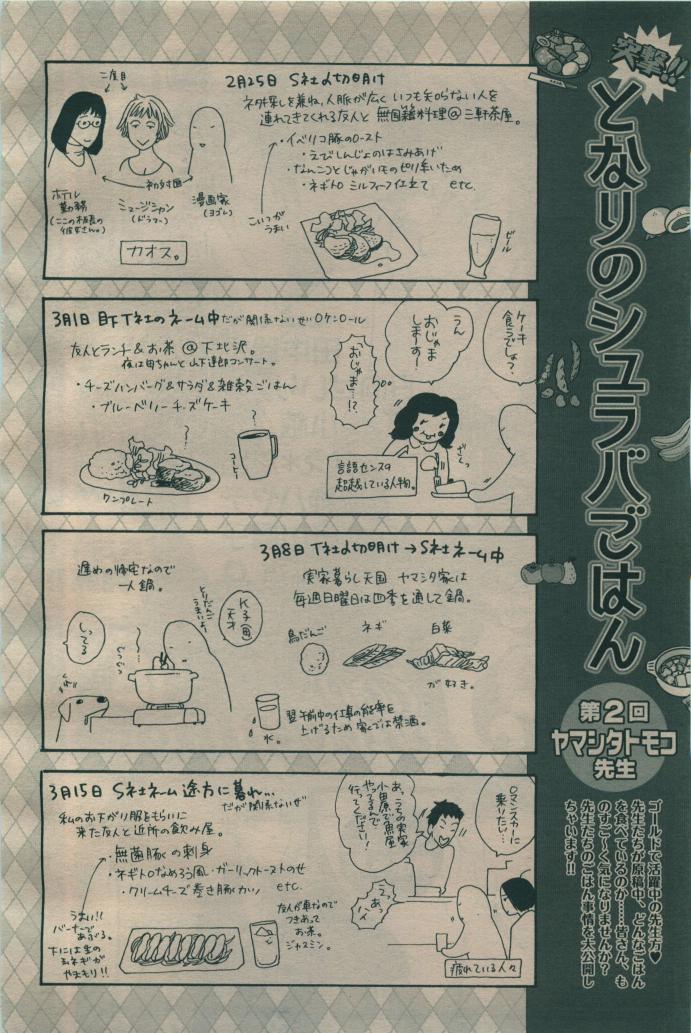 突撃!!
となりのシュラバごはん
第2回
ヤマシタトモコ
先生
ゴールドで活躍中の先生方♥
先生たちが原稿中、どんなごはん
を食べているのか……皆さん、も
のすご〜く気になりませんか?
先生たちのごはん事情を大公開し
ちゃいます!!
2月25日 S社〆切明け
ネタ探しを兼ね、人脈が広くいつも知らない人を
連れてきてくれる友人と無国籍料理@三軒茶屋。
・イベリコ豚のロースト
・えびしんじょのはさみあげ
・なんこつとじゃがいものピリ辛いため
・ネギトロミルフィーユ仕立て etc.
こいつが
うまい
ビール
二度目
初対面
ホテル
勤務
(ここの板長の
彼女さん。)
ミュージシャン
(ドラマー)
漫画家
(ヨゴレ)
カオス。
3月1日 目下T社のネーム中だが関係ないぜロケンロール
友人とランチ&お茶@下北沢。
夜は母ちゃんと山下達郎コンサート。
・チーズハンバーグ&サラダ&雑穀ごはん
・ブルーベリーチーズケーキ
ワンプレート
コーヒー
ケーキ
食うでしょ?
うん
おじゃま
しまーす!
おじゃま…!?
ざくっ
言語センスの
超越している人物。
3月8日 T社〆切明け→S社ネーム中
実家暮らし天国 ヤマシタ家は
毎週日曜日は四季を通して鍋。
鳥だんご
ネギ
白菜
が好き。
遅めの帰宅なので
一人鍋。
とりだんご
うまいよ
K子画
天才
しってる
水。
翌午前中の仕事の能率を
上げるため家では禁酒。
3月15日 S社ネーム途方に暮れ…
だが関係ないぜ
私のお下がり服をもらいに
来た友人と近所の飲み屋。
・無菌豚の刺身
・ネギトロなめろう風・ガーリックトーストのせ
・クリームチーズ巻き豚カツ etc.
うまい!!
バーナーで
あぶる。
下には生の
玉ネギが
やまもり!!
友人が車なので
つきあって
お茶。
ジャスミン。
ロマンスカーに
乗りたい…
あ、うちの実家
小田原で魚屋
やってるんで
行ってください!
えっあっ
ハイ
疲れている人々